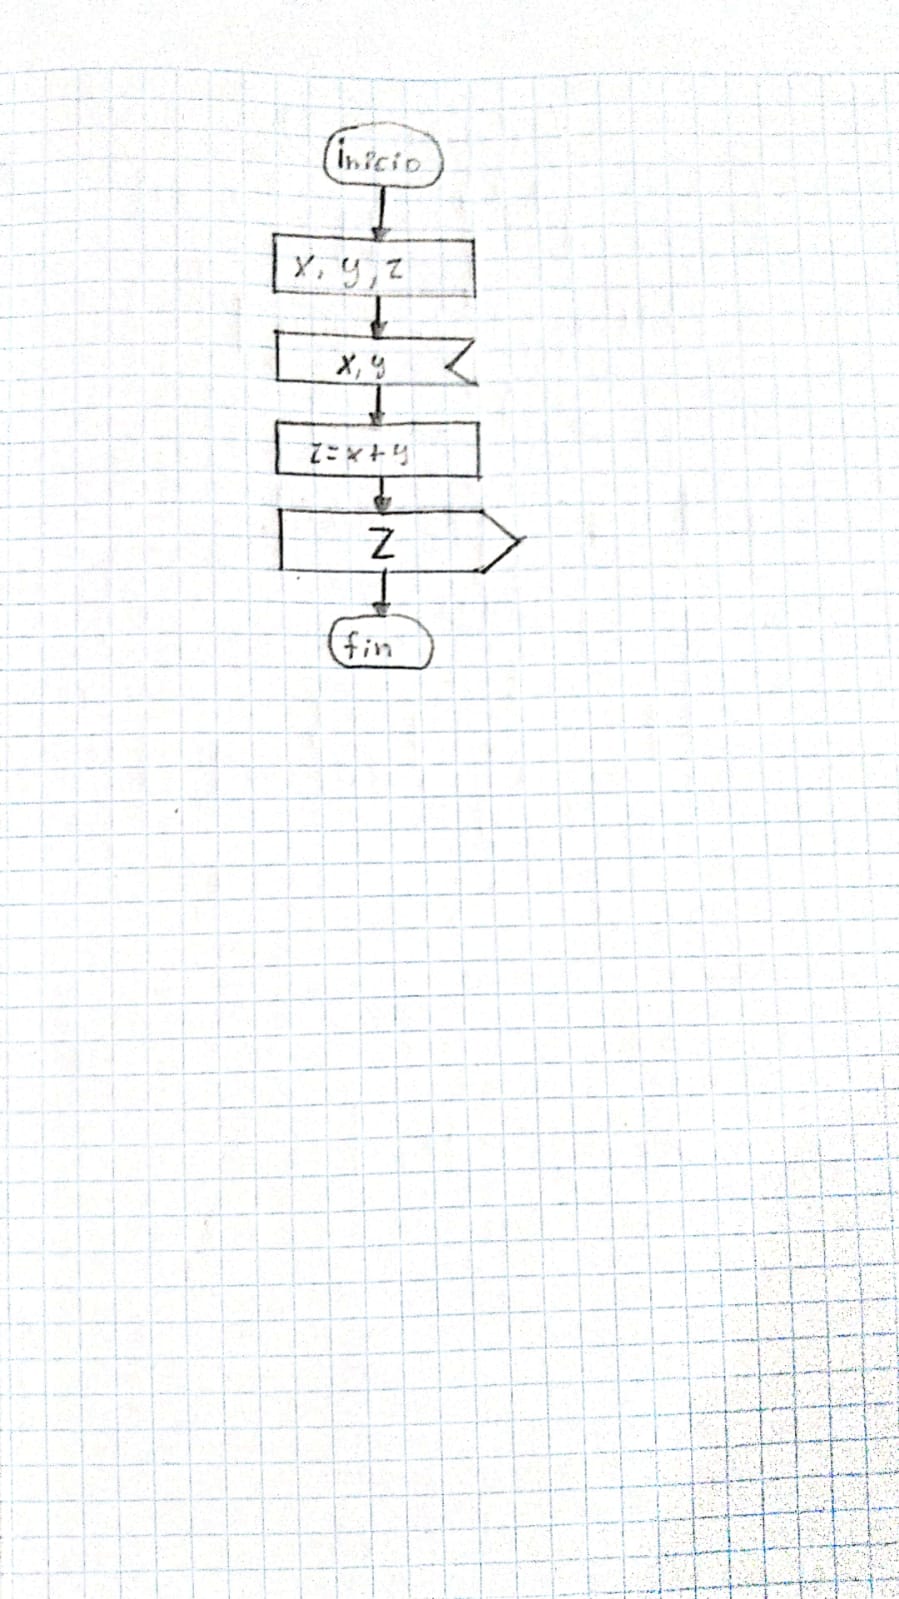 inicio
x, y, z
x, y
z=x+y
Z
fin